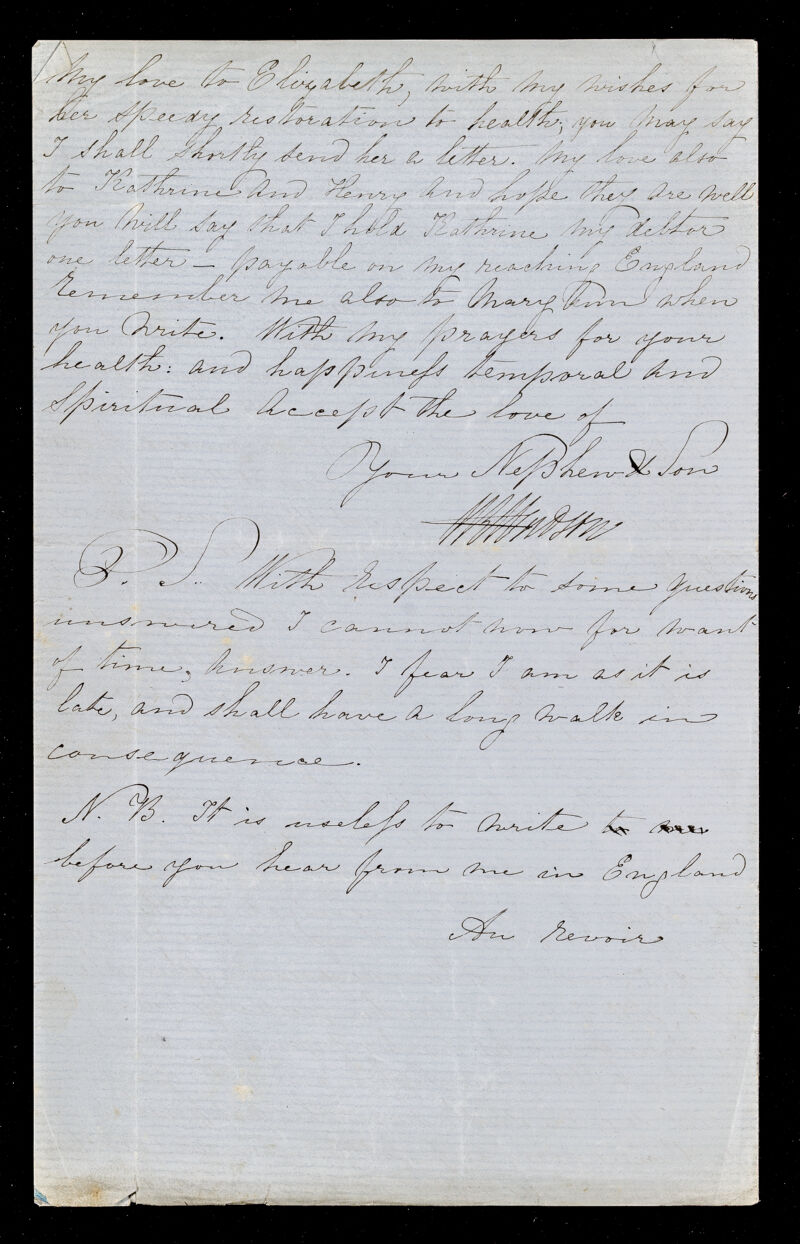 My love to Elizabeth, with my wishes for
her speedy restoration to health; you may say
I shall shortly send her a letter. My love also
to Kathrine and Henry and hope they are well
you will say that I hold Kathrine my debtor
one letter – payable on my reaching England
Remember me also to Mary Ann when
you write. With my prayers for your
health: and happiness temporal and
Spiritual accept the love of
Your Nephew & Son
P. S. With respect to some questions
unswered I cannot now for want
of time, answer. I fear I am as it is
late, and shall have a long walk in
consequence.
N. B. It is useless to write to me
before you hear from me in England
Au revoir